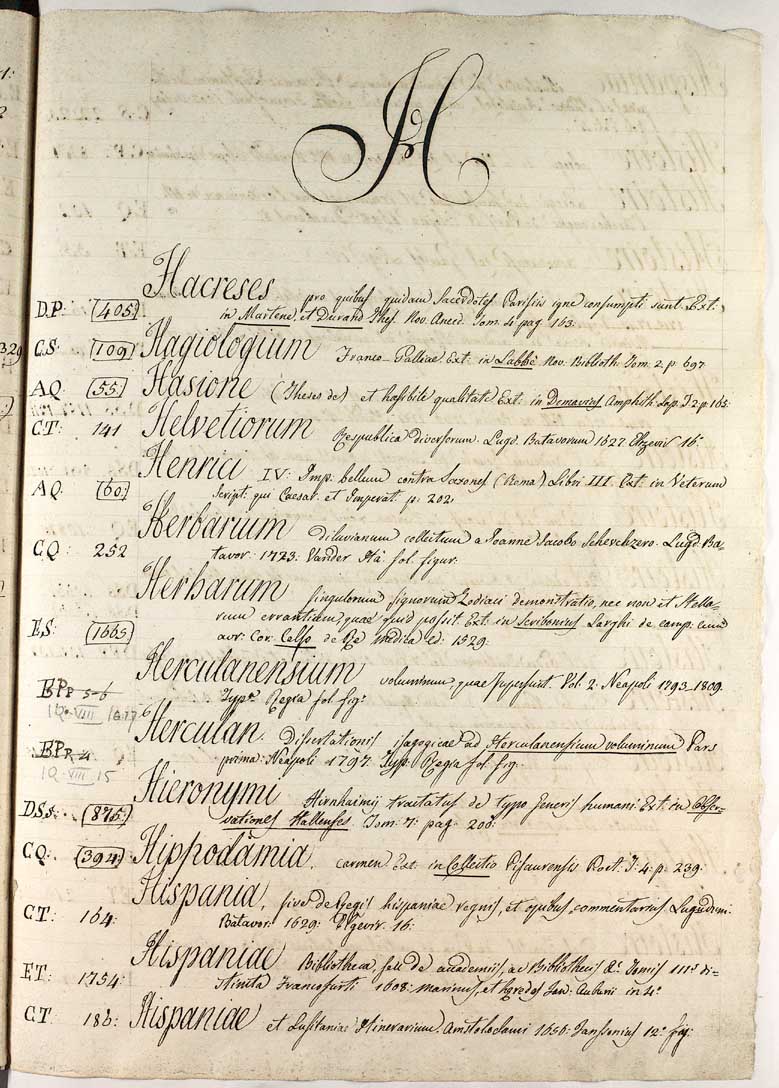 H
Haereses pro quibus quidam Sacerdotes Parisiis igne consumpti sunt. Ext:
D.P: 405 in Martene, et Durand Thes. Nov. Anecd. Tom. 4 pag. 163.
C.S: 109 Hagiologium Franco-Galliae Ext: in Labbè Nov. Biblioth. Tom. 2. p. 697
329
A.Q: 55 Hasione (Theses de) et hasibile qualitate Ext: in Dornavius Amphith. Sap. T. 2 p. 165.
C.T: 141 Helvetiorum Respublica diversorum. Lugd. Batavorum 1627. Elzevir 16.°
Henrici IV: Imp: bellum contra Saxones (Roma) Libri III. Ext: in Veterum
A.Q: 60 Script. qui Caesar. et Imperat. p. 202.
Herbarium diluvianum collectum a Joanne Jacobo Scheuchzero. Lugd. Ba-
C.Q: 252 tavor: 1723: Vander Aà. fol. figur:
Herbarum singulorum signorum Zodiaci demonstratio, nec non et Stella-
rum errantium, quae quid possit. Ext: in Scribonius Larghi de comp:
E.S: 1665 aur: Cor: Celso de Re medica ed: 1529:
Herculanensium voluminum, quae supersunt. Vol. 2. Neapoli 1793-1809.
E.P.P 5-6 Typ.s Regia fol. fig.s
IQ-VIII 16.17
6 Herculan. Dissertationis isagogicae ad Herculanensium voluminum Pars
E.P.P 4 prima: Neapoli 1797. Typ: Regia fol. fig.
IQ-VIII 15
Hieronymi Hirnhaimij tractatus de typo generis humani. Ext: in Obser-
D.S.s: 875: vationes Hallenses. Tom. 7: pag. 206:
C.Q: 394: Hippodamia. carmen Ext: in Collectio Pisaurensis Poet. T: 4: p: 239:
Hispania, sive de Regis hispaniae regnis, et opibus, commentarius Lugduni.
C.T: 164: Batavor: 1629: Elzevir. 16:
Hispaniae Bibliotheca, seu de academiis, ac Bibliothecis &.c Tomis III.s di-
E.T: 1754: stincta Francofurti 1608: marinus, et heredes Jan: Aubrii in 4.°
C.T 186: Hispaniae et Lusitaniae Itinerarium. Amstelodami 1656. Janssonius 12.° fig: